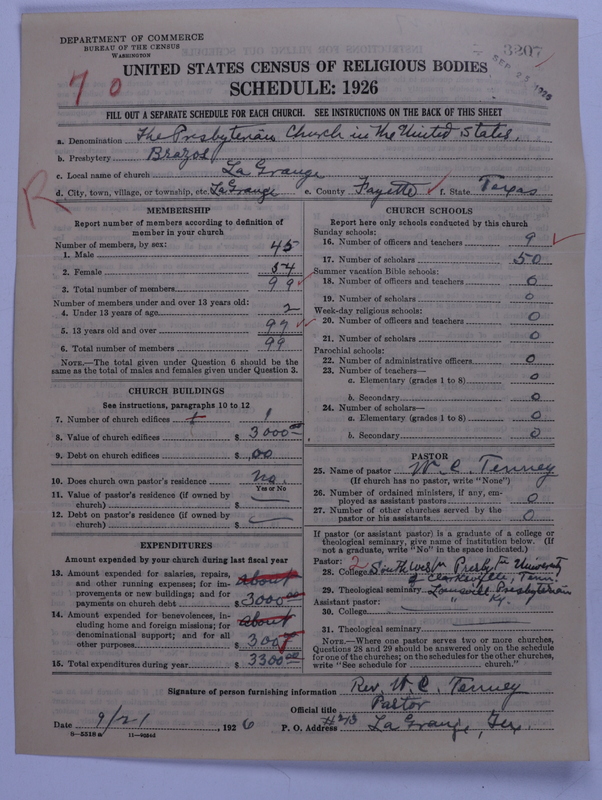 DEPARTMENT OF COMMERCE
BUREAU OF THE CENSUS
WASHINGTON
3207
SEP 25 1926
7 0
UNITED STATES CENSUS OF RELIGIOUS BODIES
SCHEDULE: 1926
FILL OUT A SEPARATE SCHEDULE FOR EACH CHURCH. SEE INSTRUCTIONS ON THE BACK OF THIS SHEET
a. Denomination The Presbyterian Church in the United States,
b. Presbytery Brazos
c. Local name of church La Grange
d. City, town, village, or township, etc. La Grange e. County Fayette f. State Texas
R
MEMBERSHIP
Report number of members according to definition of
member in your church
Number of members, by sex:
1. Male 45
2. Female 54
3. Total number of members 99
Number of members under and over 13 years old:
4. Under 13 years of age 2
5. 13 years old and over 97
6. Total number of members 99
NOTE.—The total given under Question 6 should be the
same as the total of males and females given under Question 3.
CHURCH BUILDINGS
See instructions, paragraphs 10 to 12
7. Number of church edifices 1
8. Value of church edifices $ 3000.00
9. Debt on church edifices $ .00
10. Does church own pastor's residence No.
Yes or No
11. Value of pastor's residence (if owned by
church) $
12. Debt on pastor's residence (if owned by
church) $
EXPENDITURES
Amount expended by church during last fiscal year
13. Amount expended for salaries, repairs,
and other running expenses; for im-
provements or new buildings; and for
payments on church debt about $ 3000.00
14. Amount expended for benevolences, in-
cluding home and foreign missions; for
denominational support; and for all
other purposes about $ 300
15. Total expenditures during year $ 3300.00
CHURCH SCHOOLS
Report here only schools conducted by this church
Sunday schools:
16. Number of officers and teachers 9
17. Number of scholars 50
Summer vacation Bible schools:
18. Number of officers and teachers 0
19. Number of scholars 0
Week-day religious schools:
20. Number of officers and teachers 0
21. Number of scholars 0
Parochial schools:
22. Number of administrative officers 0
23. Number of teachers—
a. Elementary (grades 1 to 8) 0
b. Secondary 0
24. Number of scholars—
a. Elementary (grades 1 to 8) 0
b. Secondary 0
PASTOR
25. Name of pastor W. C. Tenney
(If church has no pastor, write "None")
26. Number of ordained ministers, if any, em-
ployed as assistant pastors 0
27. Number of other churches served by the
pastor or his assistants 0
If pastor (or assistant pastor) is a graduate of a college or
theological seminary, give name of institution below. (If
not a graduate, write "No" in the space indicated.)
Pastor: 2
28. College Southwestern Presbytn University
of Clarksville, Tenn.
29. Theological seminary Louisvill Presbyterian
Assistant pastor: " Ky.
30. College
31. Theological seminary
NOTE.—Where one pastor serves two or more churches,
Questions 28 and 29 should be answered only on the schedule
for one of the churches; on the schedules for the other churches,
write "See schedule for church."
Signature of person furnishing information Rev. W. C. Tenney
Official title Pastor
Date 9/21, 1926 P. O. Address #313 La Grange, Tex.
9—5518a 11—9024d